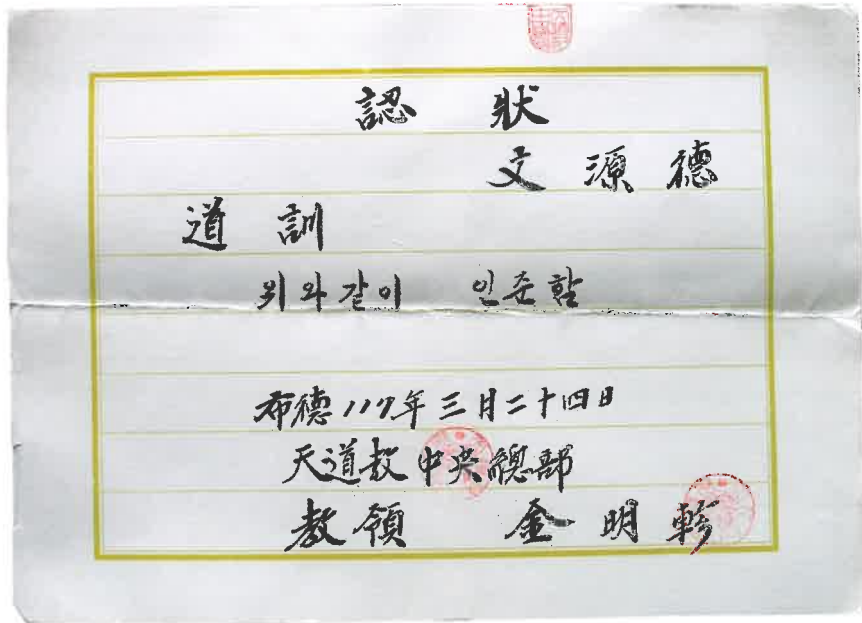 認 狀
文 源 德
道 訓
위와같이 인준함
布德 117年 三月二十四日
天道敎 中央總部
敎領 金明軫